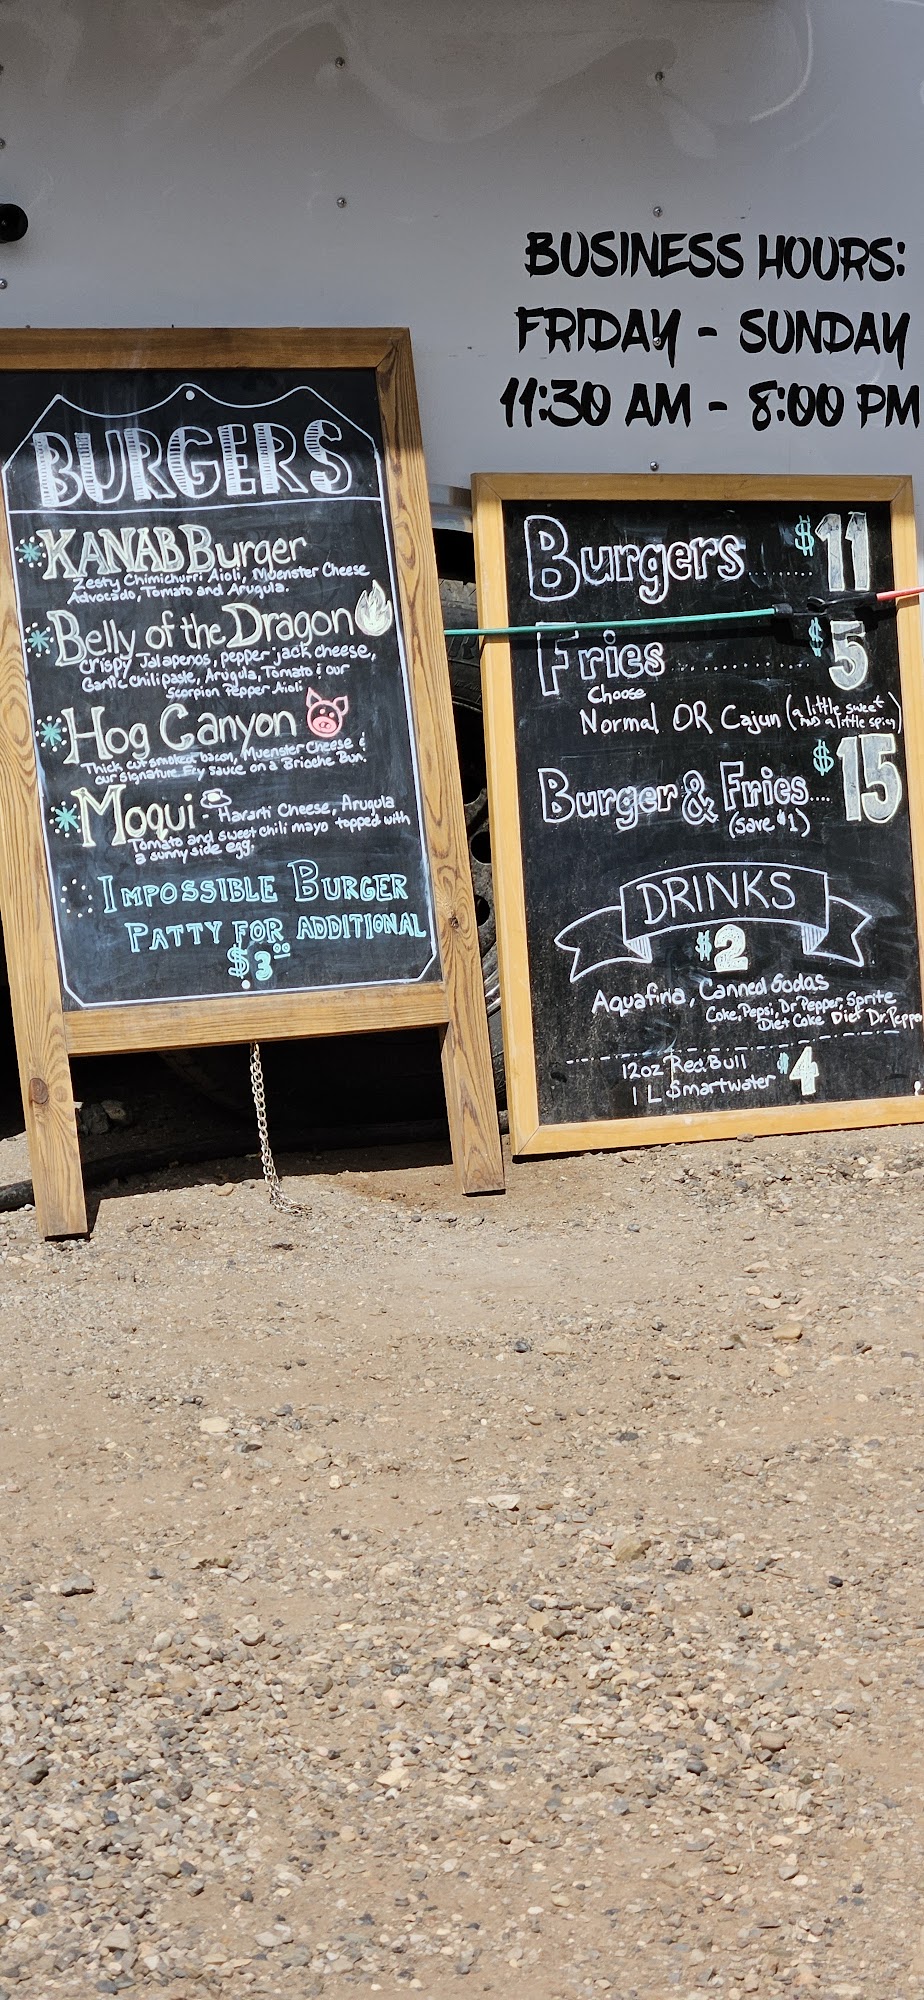 BUSINESS HOURS:
FRIDAY - SUNDAY
11:30 AM - 8:00 PM
BURGERS
KANAB Burger
Zesty Chimichurri Aioli, Muenster Cheese
Advocado, Tomato and Arugula.
Belly of the Dragon
Crispy Jalapenos, pepper jack cheese,
Garlic Chili paste, Arugula, Tomato & our
Scorpion Pepper Aioli
Hog Canyon
Thick cut smoked bacon, Muenster Cheese &
our signature Fry Sauce on a Brioche Bun.
Moqui - Havarti Cheese, Arugula
Tomato and sweet chili mayo topped with
a sunny side egg.
IMPOSSIBLE BURGER
PATTY FOR ADDITIONAL
$3.00
Burgers ....... $11
Fries ............ $5
Choose
Normal OR Cajun (a little sweet
a little spicy)
Burger & Fries.... $15
(Save $1)
DRINKS
$2
Aquafina, Canned Sodas
Coke, Pepsi, Dr Pepper, Sprite
Diet Coke Diet Dr. Pepper
12oz Red Bull
1 L Smartwater $4